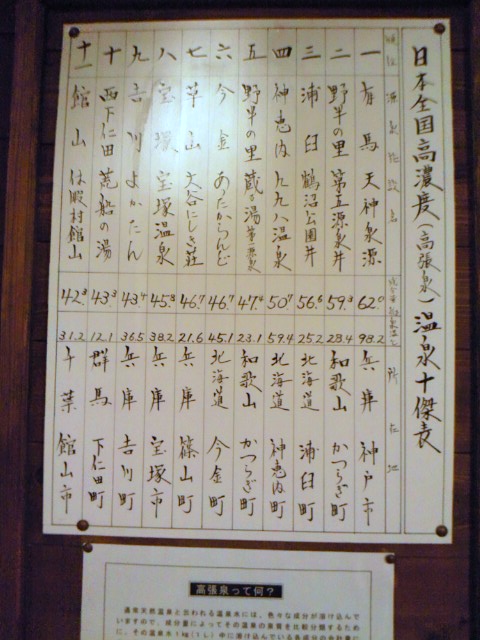 日本全国高濃度(高張泉)温泉十傑表
順位 源泉施設名 成分量 温泉温度 所在地
一 有馬 天神泉源 62.0 98.2 兵庫 神戸市
二 野半の里 第五源泉井 59.3 28.4 和歌山 かつらぎ町
三 浦臼 鶴沼公園井 56.6 25.2 北海道 浦臼町
四 神恵内 九九八温泉 50.7 59.4 北海道 神恵内町
五 野半の里 蔵の湯 47.4 23.1 和歌山 かつらぎ町
六 今金 あったからんど 46.7 45.1 北海道 今金町
七 草山 大谷にしき荘 46.7 21.6 兵庫 篠山町
八 宝塚 宝塚温泉 45.8 38.2 兵庫 宝塚市
九 吉川 よかたん 43.4 36.5 兵庫 吉川町
十 西下仁田 荒船の湯 43.3 12.1 群馬 下仁田町
十一 館山 休暇村館山 42.3 31.2 千葉 館山市
高張泉って何?
通常天然温泉と云われる温泉水には、色々な成分が溶け込んで
いますので、成分量によってその温泉の濃度を比較分類するため
に、その温泉水1kg(1L)中に溶け込んでいる